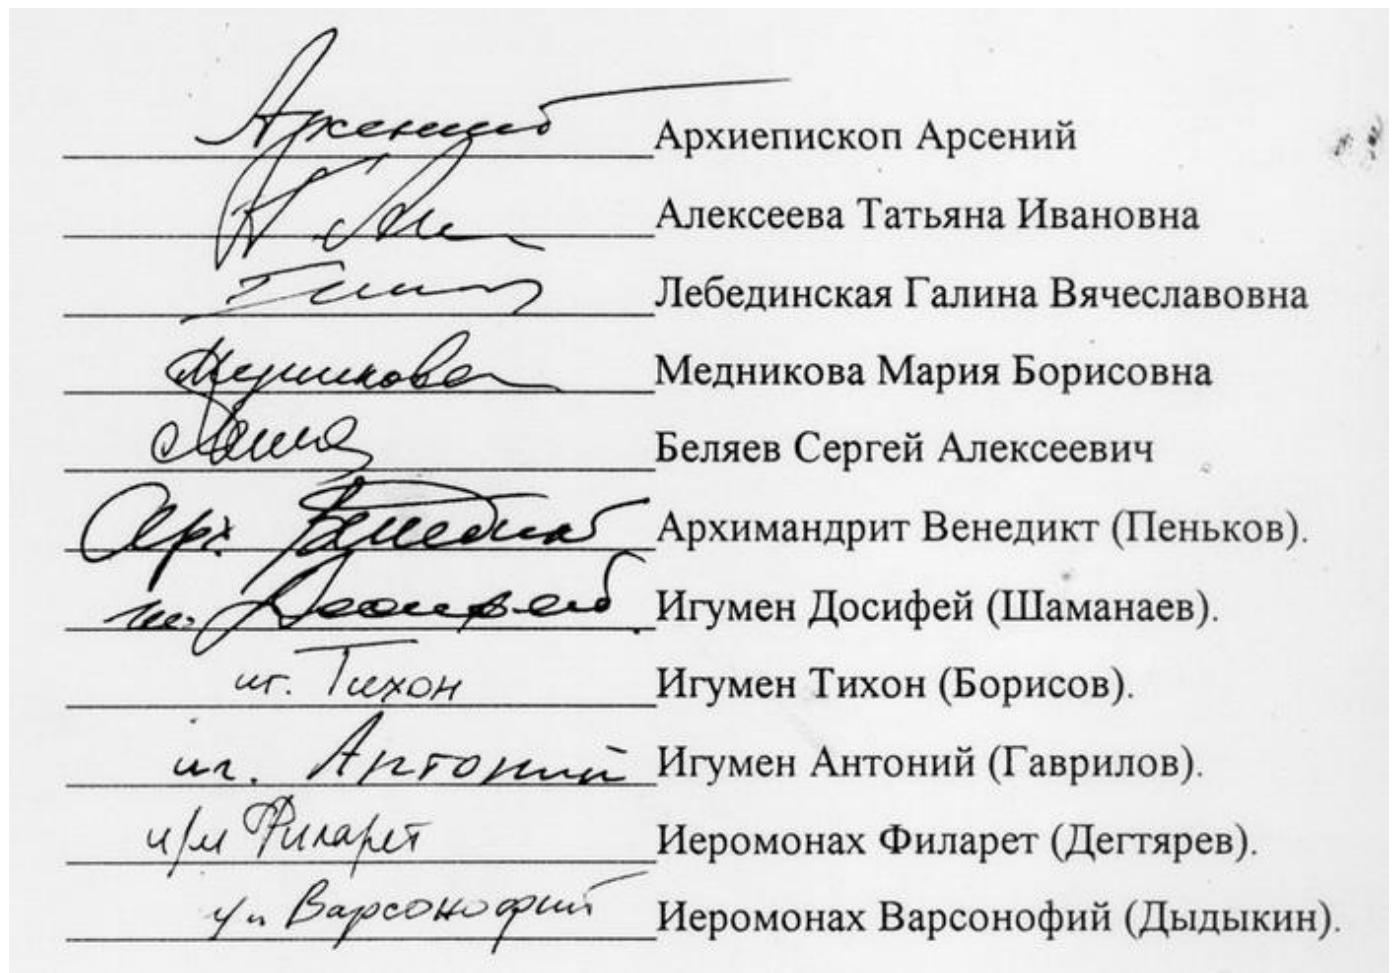 Арсений Архиепископ Арсений
Алексеева Татьяна Ивановна
Лебединская Галина Вячеславовна
Медникова Медникова Мария Борисовна
Беляев Сергей Алексеевич
Арх. Венедикт Архимандрит Венедикт (Пеньков).
иг. Досифей Игумен Досифей (Шаманаев).
иг. Тихон Игумен Тихон (Борисов).
иг. Антоний Игумен Антоний (Гаврилов).
и/м Филарет Иеромонах Филарет (Дегтярев).
Варсонофий Иеромонах Варсонофий (Дыдыкин).